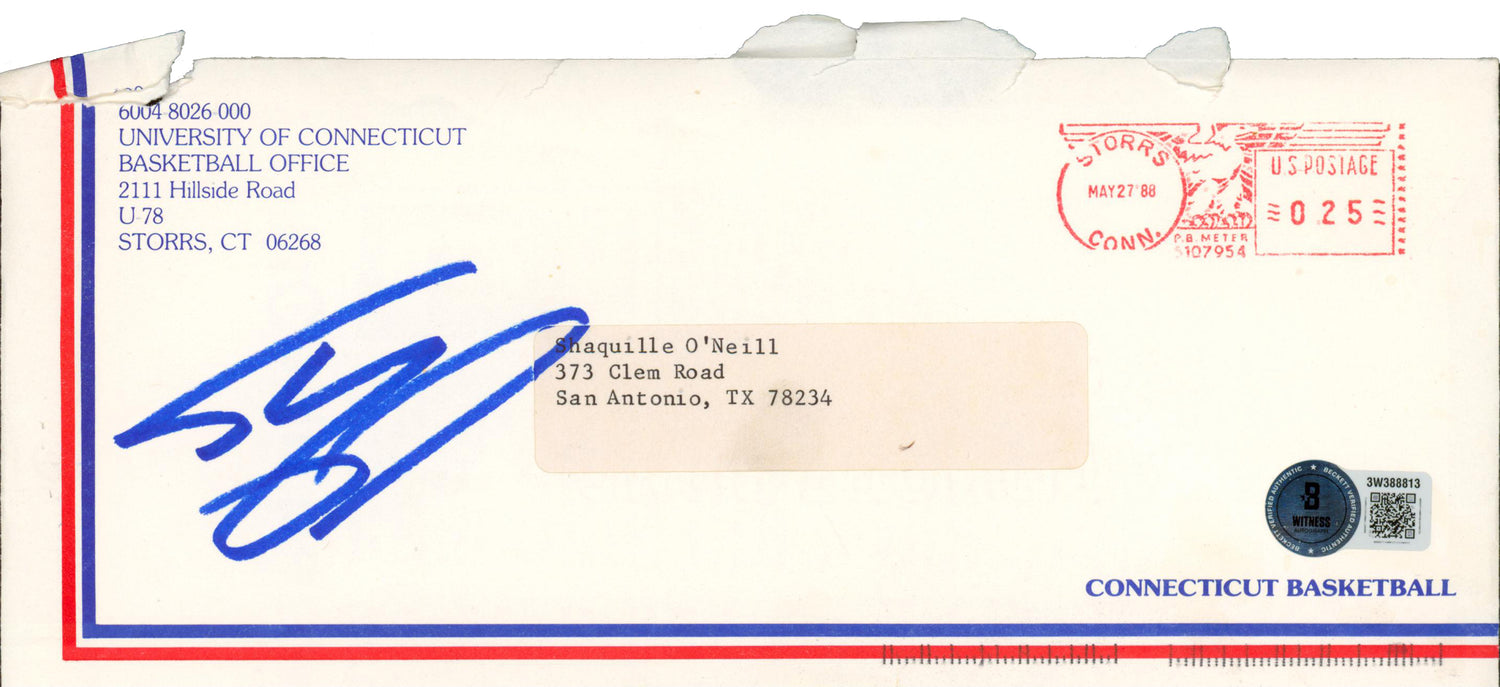 6004-8026-000
UNIVERSITY OF CONNECTICUT
BASKETBALL OFFICE
2111 Hillside Road
U-78
STORRS, CT 06268
STORRS
MAY 27 '88
CONN.
P.B. METER
5107954
U.S. POSTAGE
0 25
Shaquille O'Neill
373 Clem Road
San Antonio, TX 78234
BECKETT VERIFIED AUTHENTIC ★ BECKETT VERIFIED AUTHENTIC ★
B
WITNESS
AUTOGRAPHS
3W388813
CONNECTICUT BASKETBALL